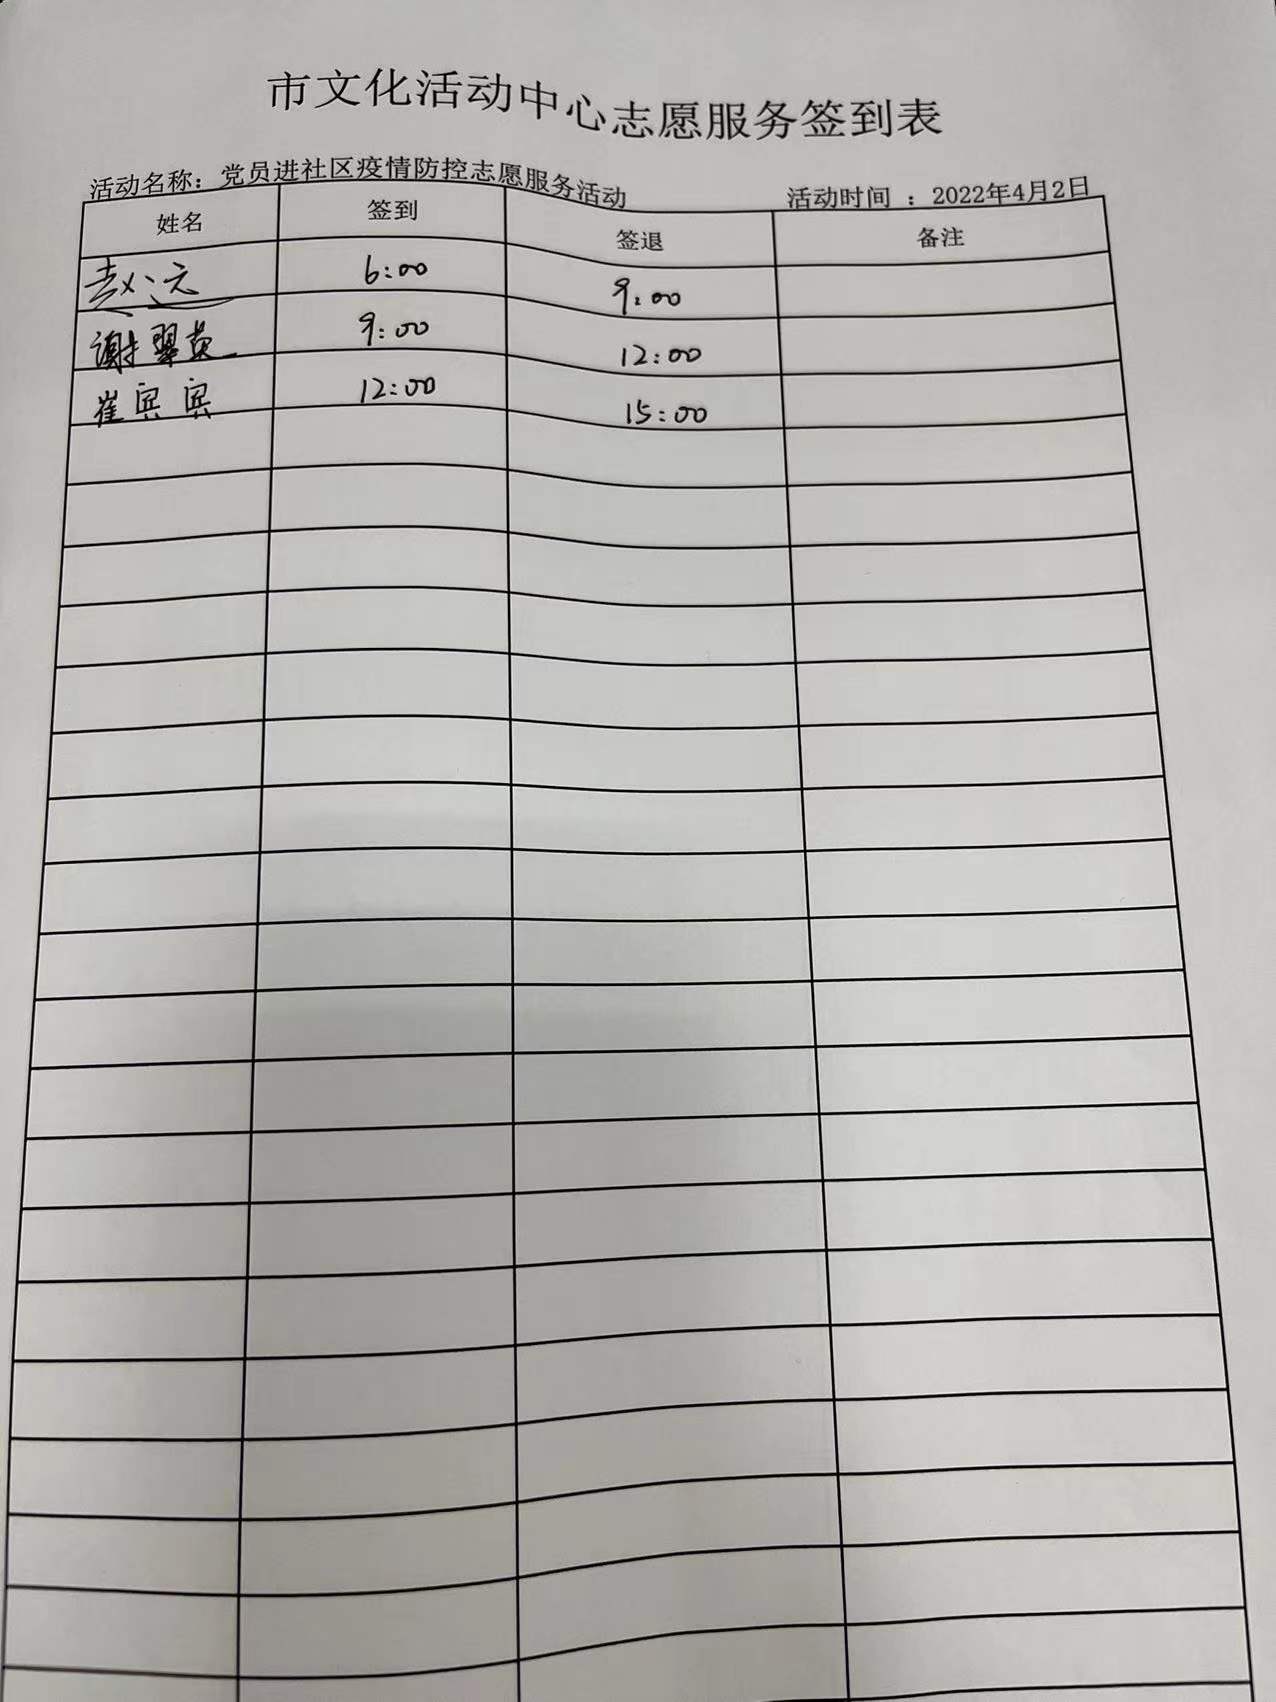 市文化活动中心志愿服务签到表
活动名称：党员进社区疫情防控志愿服务活动 活动时间 ：2022年4月2日
姓名 签到 签退 备注
赵远 6:00 9:00
谢翠英 9:00 12:00
崔宾宾 12:00 15:00